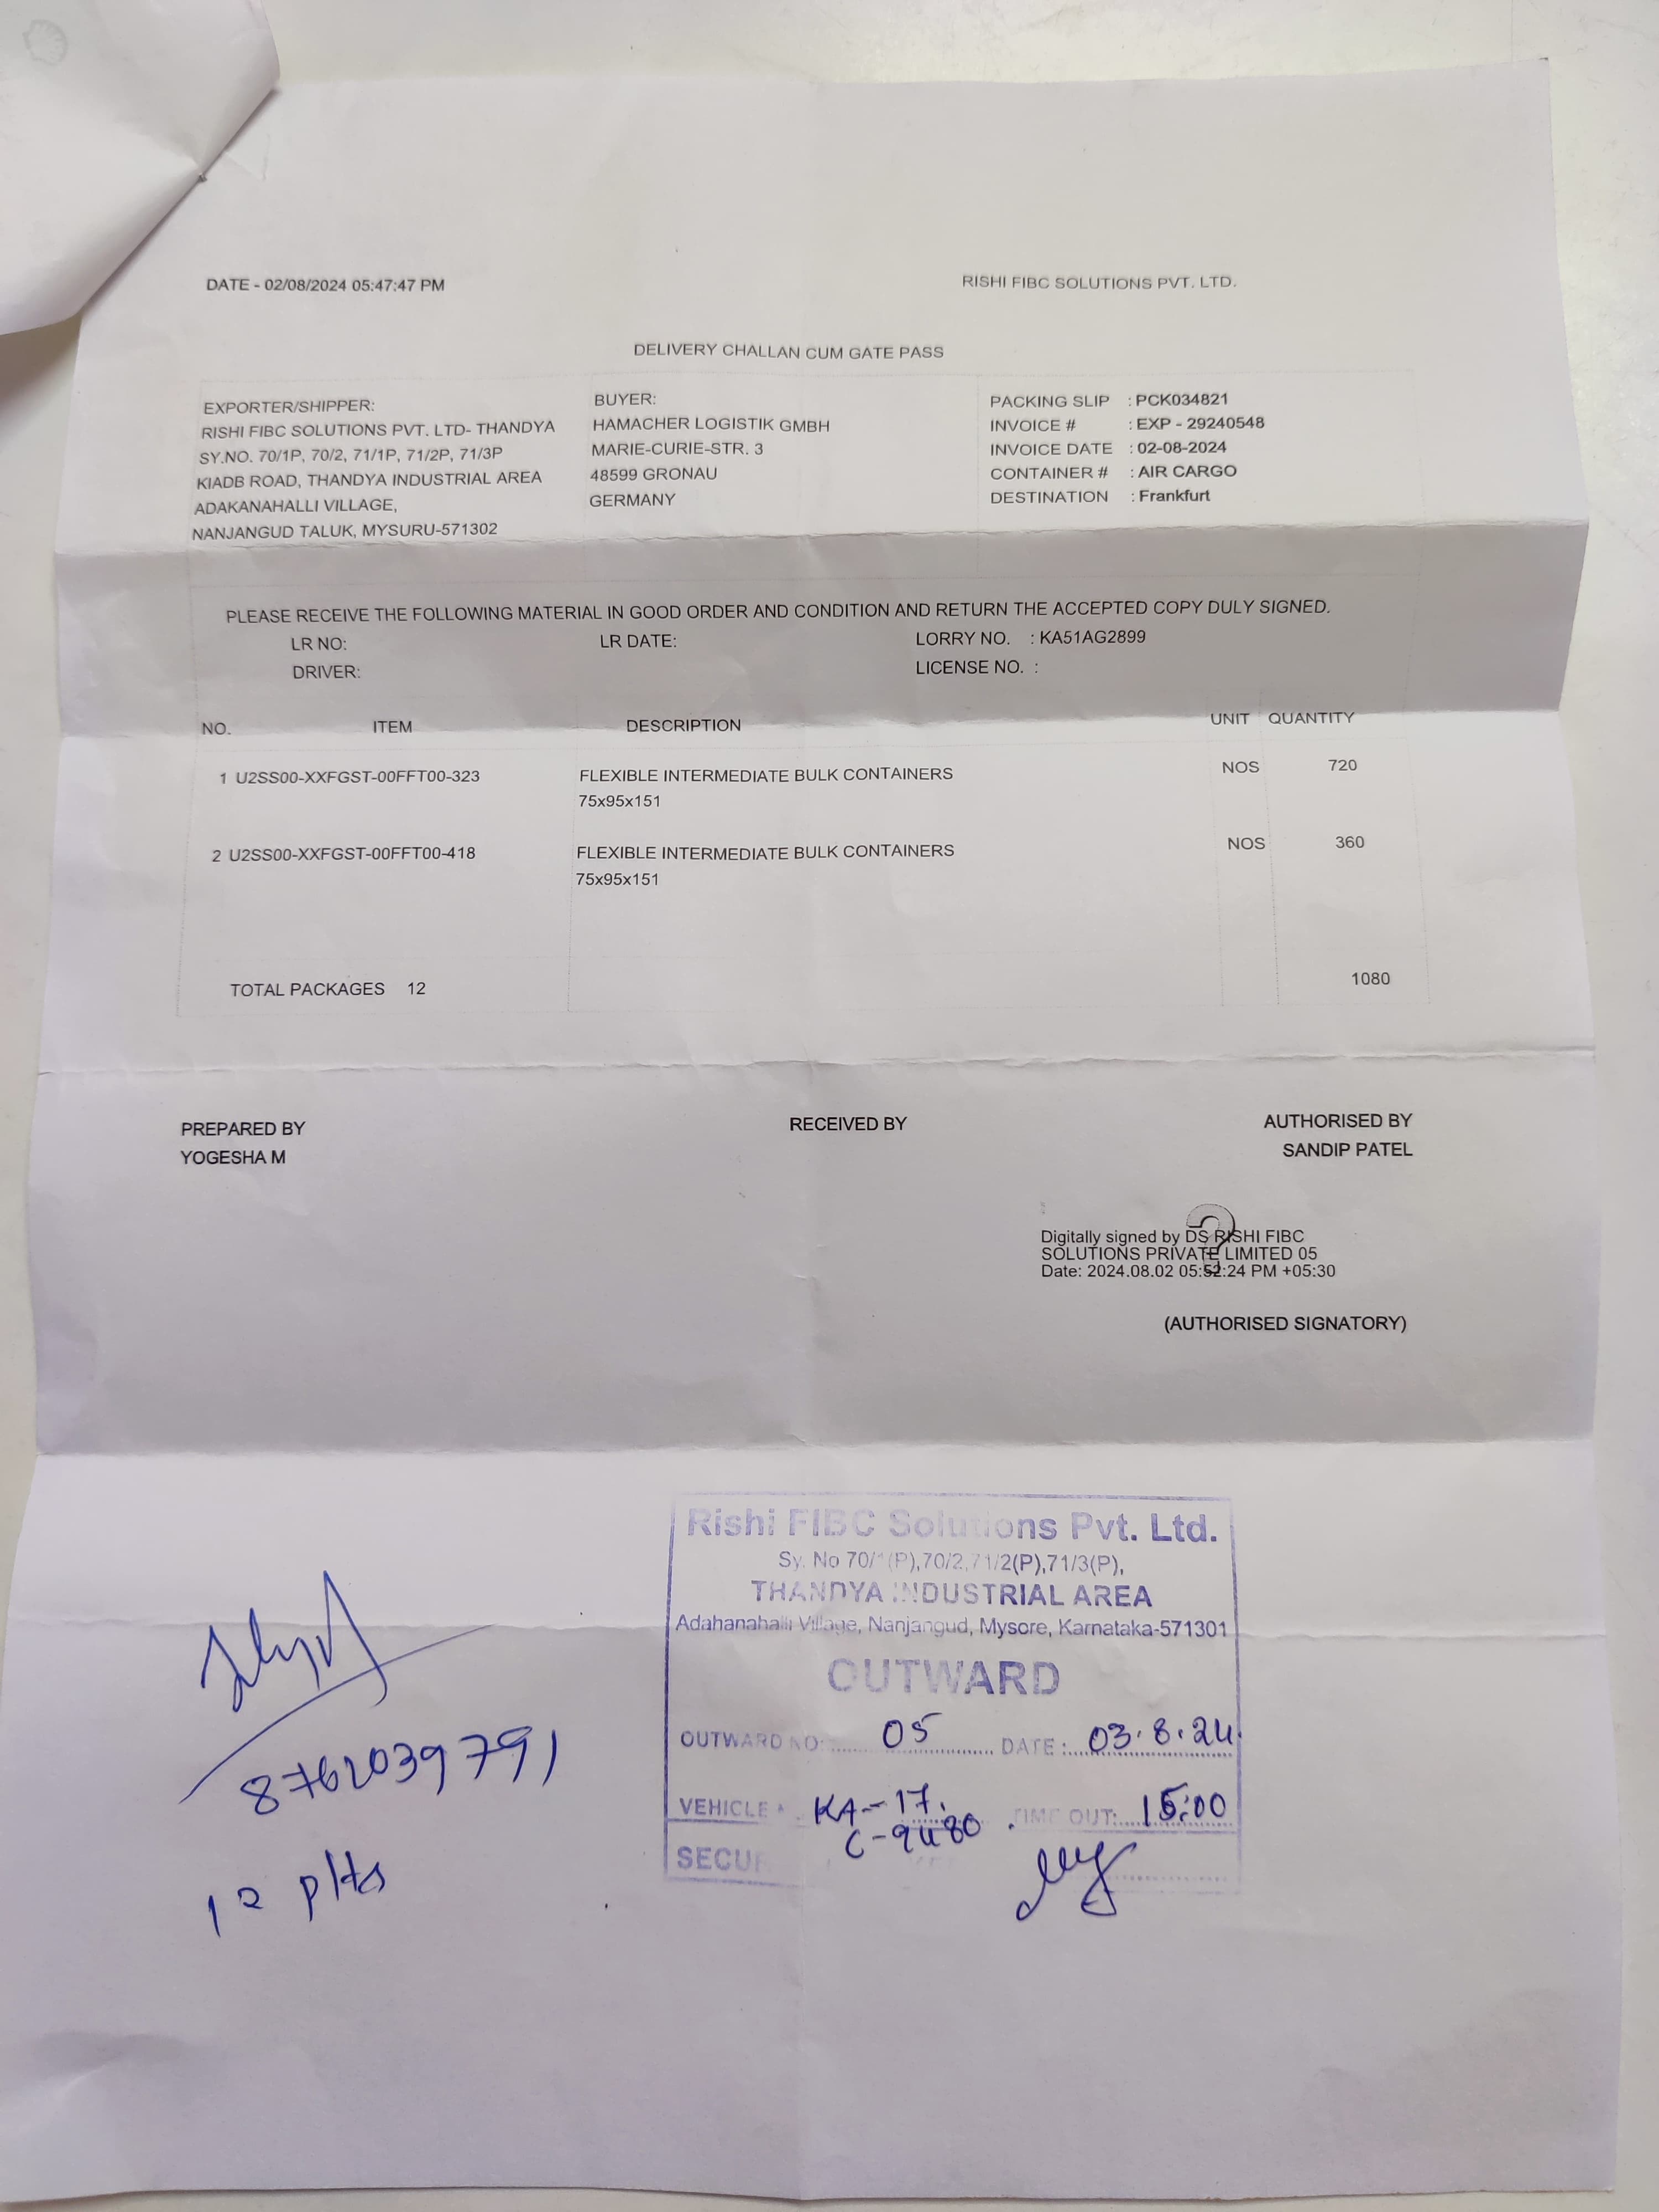 DATE - 02/08/2024 05:47:47 PM
RISHI FIBC SOLUTIONS PVT. LTD.
DELIVERY CHALLAN CUM GATE PASS
EXPORTER/SHIPPER:
RISHI FIBC SOLUTIONS PVT. LTD- THANDYA
SY.NO. 70/1P, 70/2, 71/1P, 71/2P, 71/3P
KIADB ROAD, THANDYA INDUSTRIAL AREA
ADAKANAHALLI VILLAGE,
NANJANGUD TALUK, MYSURU-571302
BUYER:
HAMACHER LOGISTIK GMBH
MARIE-CURIE-STR. 3
48599 GRONAU
GERMANY
PACKING SLIP : PCK034821
INVOICE # : EXP - 29240548
INVOICE DATE : 02-08-2024
CONTAINER # : AIR CARGO
DESTINATION : Frankfurt
PLEASE RECEIVE THE FOLLOWING MATERIAL IN GOOD ORDER AND CONDITION AND RETURN THE ACCEPTED COPY DULY SIGNED.
LR NO: LR DATE: LORRY NO. : KA51AG2899
DRIVER: LICENSE NO. :
NO. ITEM DESCRIPTION UNIT QUANTITY
1 U2SS00-XXFGST-00FFT00-323 FLEXIBLE INTERMEDIATE BULK CONTAINERS NOS 720
75x95x151
2 U2SS00-XXFGST-00FFT00-418 FLEXIBLE INTERMEDIATE BULK CONTAINERS NOS 360
75x95x151
TOTAL PACKAGES 12 1080
PREPARED BY
YOGESHA M
RECEIVED BY
AUTHORISED BY
SANDIP PATEL
Digitally signed by DS RISHI FIBC
SOLUTIONS PRIVATE LIMITED 05
Date: 2024.08.02 05:52:24 PM +05:30
(AUTHORISED SIGNATORY)
Rishi FIBC Solutions Pvt. Ltd.
Sy. No 70/1(P),70/2,71/2(P),71/3(P),
THANDYA INDUSTRIAL AREA
Adahanahalli Village, Nanjangud, Mysore, Karnataka-571301
OUTWARD
OUTWARD NO: 05 DATE: 03.8.24.
VEHICLE KA-17. TIME OUT: 15:00
C-9480
8762039791
12 plts